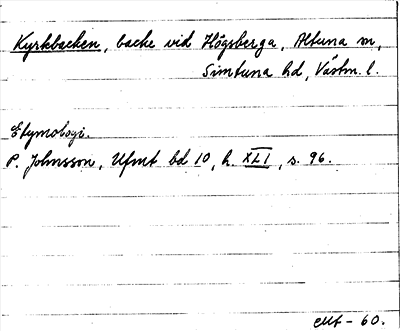 Kyrkbacken, backe vid Högsberga, Altuna sn,
Simtuna hd, Västm. l.
Etymologi.
P. Johnsson, Ufmt bd 10, h. XLI, s. 96.
- 60.